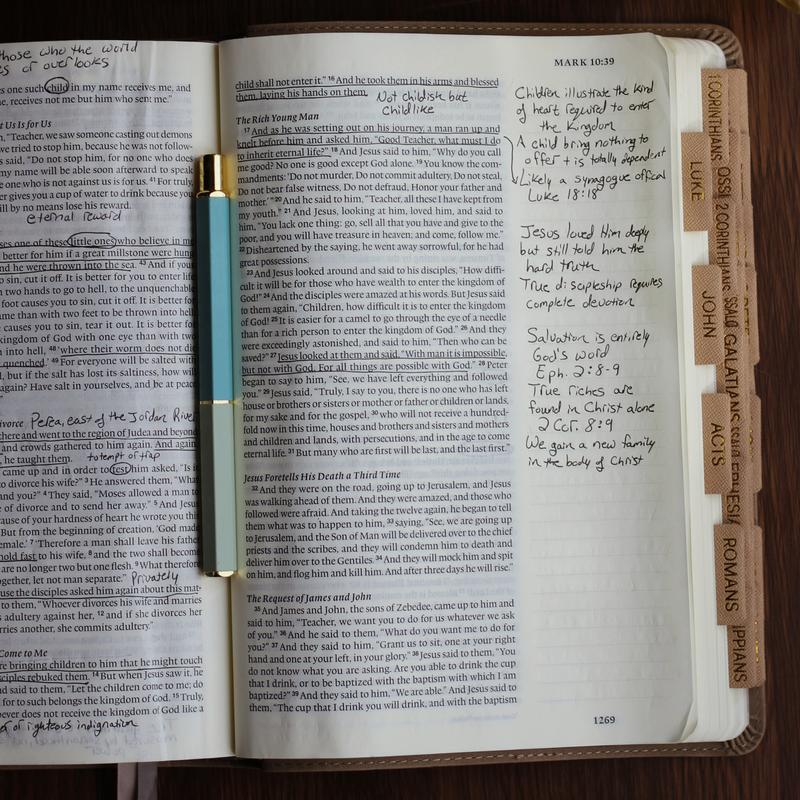 those who the world
es or overlooks
es one such child in my name receives me, and
e, receives not me but him who sent me."
t Us Is for Us
, "Teacher, we saw someone casting out demons
ve tried to stop him, because he was not follow-
s said, "Do not stop him, for no one who does
my name will be able soon afterward to speak
e one who is not against us is for us. 41 For truly,
er gives you a cup of water to drink because you
ill by no means lose his reward.
eternal reward
ses one of these little ones who believe in me
better for him if a great millstone were hung
and he were thrown into the sea. 43 And if your
o sin, cut it off. It is better for you to enter life
n two hands to go to hell, to the unquenchable
foot causes you to sin, cut it off. It is better for
ame than with two feet to be thrown into hell
causes you to sin, tear it out. It is better for
kingdom of God with one eye than with two
n into hell, 48 'where their worm does not die
quenched.' 49 For everyone will be salted with
l, but if the salt has lost its saltiness, how will
again? Have salt in yourselves, and be at peace
vorce Perea, east of the Jordan River
there and went to the region of Judea and beyond
and crowds gathered to him again. And again
, he taught them. to tempt or trap
came up and in order to test him asked, "Is it
and you?" 4 They said, "Moses allowed a man to
of divorce and to send her away." 5 And Jesus
ause of your hardness of heart he wrote you this
But from the beginning of creation, 'God made
emale.' 7 'Therefore a man shall leave his father
hold fast to his wife, 8 and the two shall become
are no longer two but one flesh. 9 What therefore
ogether, let not man separate." Privately
use the disciples asked him again about this mat-
to them, "Whoever divorces his wife and marries
adultery against her, 12 and if she divorces her
rries another, she commits adultery."
Come to Me
re bringing children to him that he might touch
sciples rebuked them. 14 But when Jesus saw it, he
d said to them, "Let the children come to me; do
for to such belongs the kingdom of God. 15 Truly,
oever does not receive the kingdom of God like a
or righteous indignation
MARK 10:39
child shall not enter it." 16 And he took them in his arms and blessed
them, laying his hands on them.
Not childish but
childlike
The Rich Young Man
17 And as he was setting out on his journey, a man ran up and
knelt before him and asked him, "Good Teacher, what must I do
to inherit eternal life?" 18 And Jesus said to him, "Why do you call
me good? No one is good except God alone. 19 You know the com-
mandments: 'Do not murder, Do not commit adultery, Do not steal,
Do not bear false witness, Do not defraud, Honor your father and
mother.'" 20 And he said to him, "Teacher, all these I have kept from
my youth." 21 And Jesus, looking at him, loved him, and said to
him, "You lack one thing: go, sell all that you have and give to the
poor, and you will have treasure in heaven; and come, follow me."
22 Disheartened by the saying, he went away sorrowful, for he had
great possessions.
23 And Jesus looked around and said to his disciples, "How diffi-
cult it will be for those who have wealth to enter the kingdom of
God!" 24 And the disciples were amazed at his words. But Jesus said
to them again, "Children, how difficult it is to enter the kingdom
of God! 25 It is easier for a camel to go through the eye of a needle
than for a rich person to enter the kingdom of God." 26 And they
were exceedingly astonished, and said to him, "Then who can be
saved?" 27 Jesus looked at them and said, "With man it is impossible,
but not with God. For all things are possible with God." 28 Peter
began to say to him, "See, we have left everything and followed
you." 29 Jesus said, "Truly, I say to you, there is no one who has left
house or brothers or sisters or mother or father or children or lands,
for my sake and for the gospel, 30 who will not receive a hundred-
fold now in this time, houses and brothers and sisters and mothers
and children and lands, with persecutions, and in the age to come
eternal life. 31 But many who are first will be last, and the last first."
Jesus Foretells His Death a Third Time
32 And they were on the road, going up to Jerusalem, and Jesus
was walking ahead of them. And they were amazed, and those who
followed were afraid. And taking the twelve again, he began to tell
them what was to happen to him, 33 saying, "See, we are going up
to Jerusalem, and the Son of Man will be delivered over to the chief
priests and the scribes, and they will condemn him to death and
deliver him over to the Gentiles. 34 And they will mock him and spit
on him, and flog him and kill him. And after three days he will rise."
The Request of James and John
35 And James and John, the sons of Zebedee, came up to him and
said to him, "Teacher, we want you to do for us whatever we ask
of you." 36 And he said to them, "What do you want me to do for
you?" 37 And they said to him, "Grant us to sit, one at your right
hand and one at your left, in your glory." 38 Jesus said to them, "You
do not know what you are asking. Are you able to drink the cup
that I drink, or to be baptized with the baptism with which I am
baptized?" 39 And they said to him, "We are able." And Jesus said to
them, "The cup that I drink you will drink, and with the baptism
Children illustrate the kind
of heart required to enter
the Kingdom
A child bring nothing to
offer + is totally dependent
Likely a synagogue offical
Luke 18:18
Jesus loved Him deeply
but still told him the
hard truth
True discipleship requires
complete devotion
Salvation is entirely
God's word
Eph. 2:8-9
True riches are
found in Christ alone
2 Cor. 8:9
We gain a new family
in the body of Christ
1269
LUKE
JOHN
ACTS
ROMANS
1 CORINTHIANS
2 CORINTHIANS
GALATIANS
EPHESIA
IPPIANS